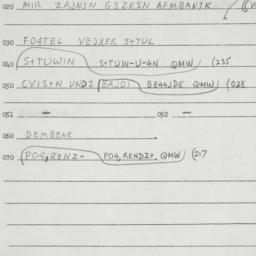 020 MIR ZAJNSN G3ZESN AFMBANJK
030 FO4TEL VEJXER S+TUL
040 S+TUWIN S+TUW-U-4N QMW (235
050 CVIS+N UNDZ BAJDI BE44JDE QMW (028
051 — 052 —
060 DEMBENE
070 PO4,RENZ+ PO4,RENDZ+ QMW (217